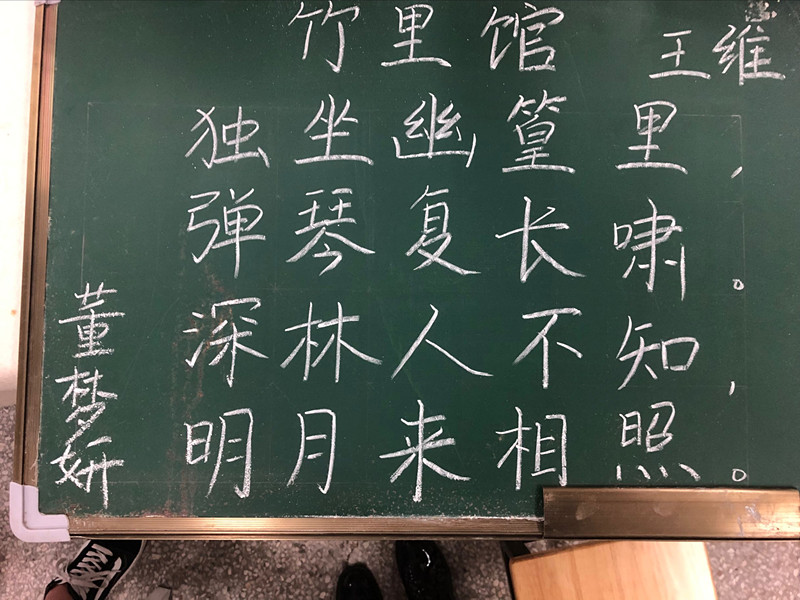 竹里馆 王维
独坐幽篁里，
弹琴复长啸。
深林人不知，
明月来相照。
董梦妍